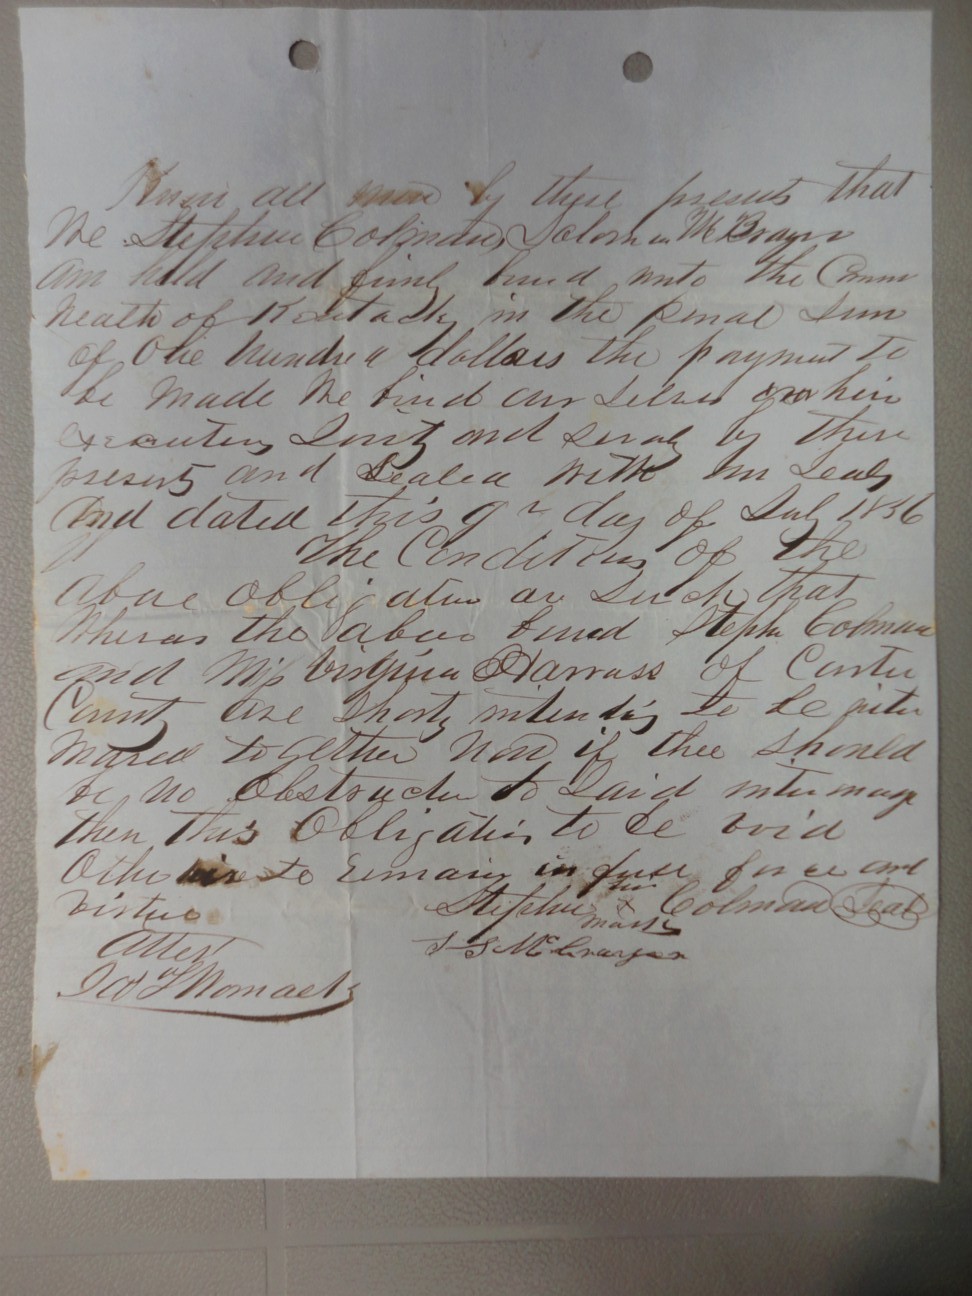 Know all men by these presents that
We Stephen Colman, Solomon McBrayer
am held and firmly bound unto the Comm
Wealth of Kentucky in the penal Sum
of One hundred dollars the payment to
be made We bind our Selves our heirs
executors Jointly and Severaly by these
presents and Sealed with our Seals
And dated this 9th day of July 1856
The Conditions of the
above obligation are Such that
Wheras the above bound Stephn Colman
and Miss Virginia Harrass of Carter
County are Shortly intending to be inter
maried together Now if thee should
be no Obstruction to Said intermarage
then this Obligation to be void
Otherwise to remain in full force and
Virtue Stephen his x mark Colman Seal
Attest S S McBrayer